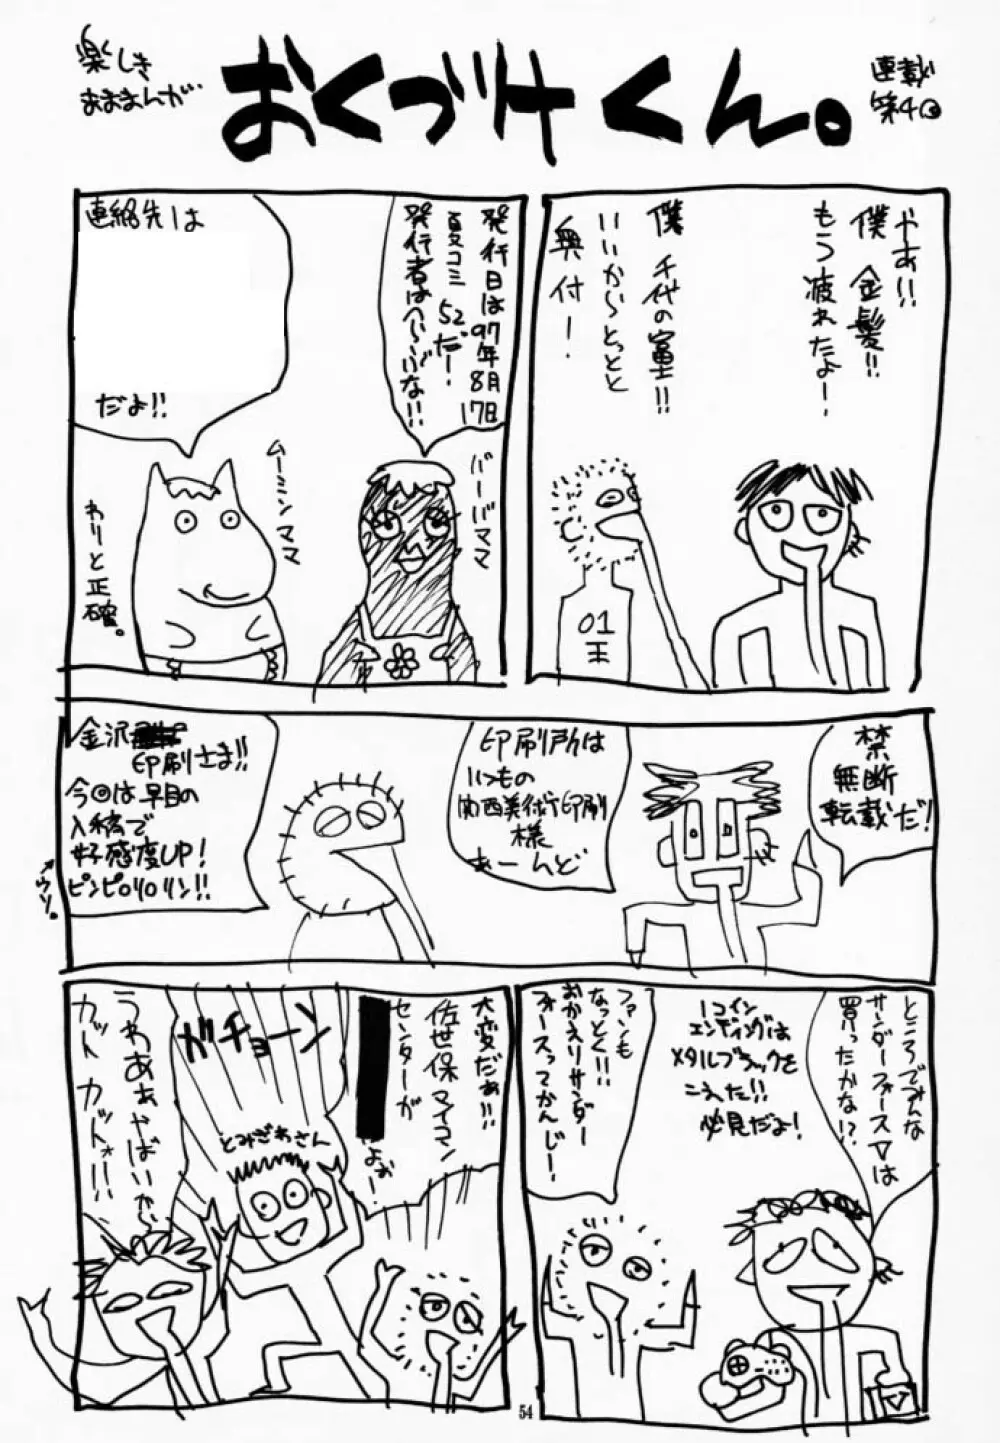 楽しき
おまけまんが
おくづけくん。
連載
第4回
やあ!!
僕 金髪!!
もう疲れたよー
僕 千代の富士!!
いいからとっとと
奥付!
01
王
発行日は97年8月17日
夏コミ 52だー
連絡先は
だよ!!
バーバママ
ムーミンママ
わりと正確。
禁
無断
転載だ!
印刷所は
いつもの
関西美術印刷
様
あーんど
金沢
印刷さま!!
今回は早目の
入稿で
好感度UP!
ピンピロリロリン!!
←ウソ。
ところでみんな
サンダーフォースVは
買ったかな!?
1コイン
エンディングは
メタルブラックを
こえた!!
必見だよ!
ファンも
なっとく!!
おかえりサンダー
フォースってかんじ!
大変だぁ!!
佐世保マイコン
センターが
よぉー!
ガチョーン
とみざわさん
うわあぁやばいから
カットカットォ!!
54